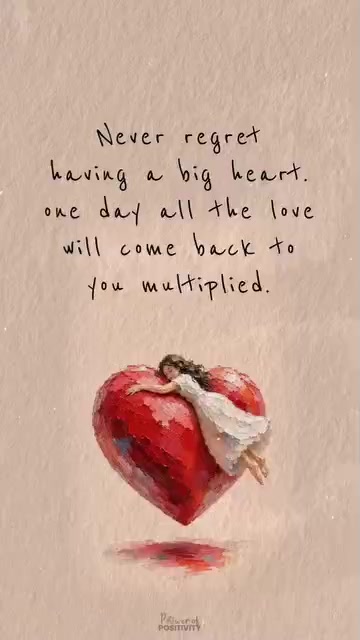 Never regret
having a big heart.
one day all the love
will come back to
you multiplied.
Power of
POSITIVITY